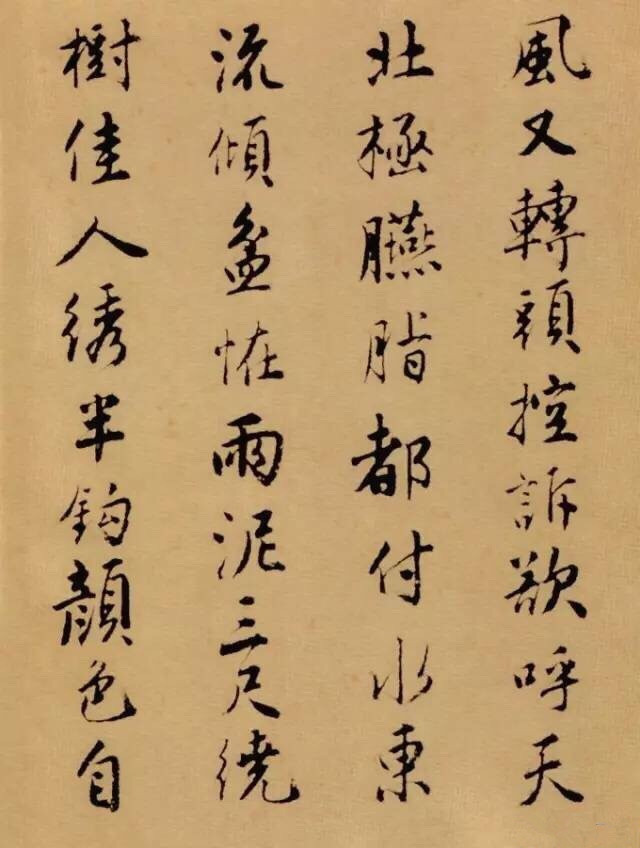 風又轉頽控訴欲呼天
北極臙脂都付水東
流傾盆恠雨泥三尺繞
樹佳人綉半鈎顔色自